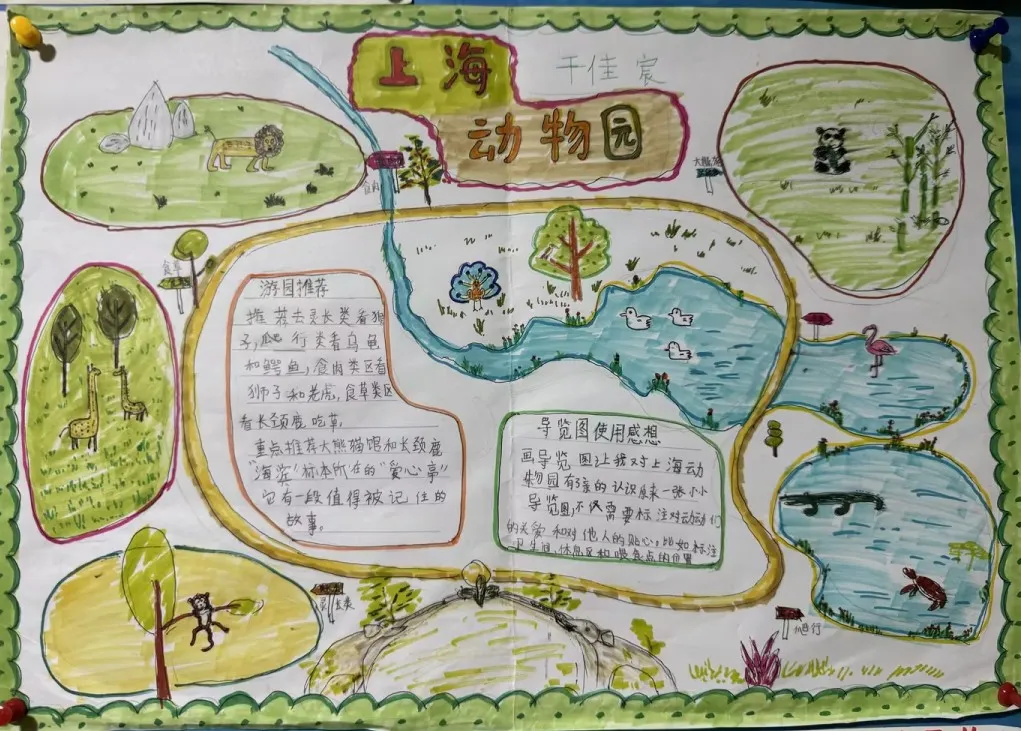 上海
动物园
干佳宸
大熊猫
食肉
食草
游园推荐
推荐去灵长类看猴
子,爬行类看乌龟
和鳄鱼,食肉类区看
狮子和老虎,食草类区
看长颈鹿吃草,
重点推荐大熊猫馆和长颈鹿
“海滨”标本所在的“爱心亭”
它有一段值得被记住的
故事。
导览图使用感想
画导览图让我对上海动
物园有了新的认识原来一张小小
导览图,不仅需要标注对动动们
的关爱和对他人的贴心,比如标注
卫生间,休息区和喂食点的位置
灵长类
爬行